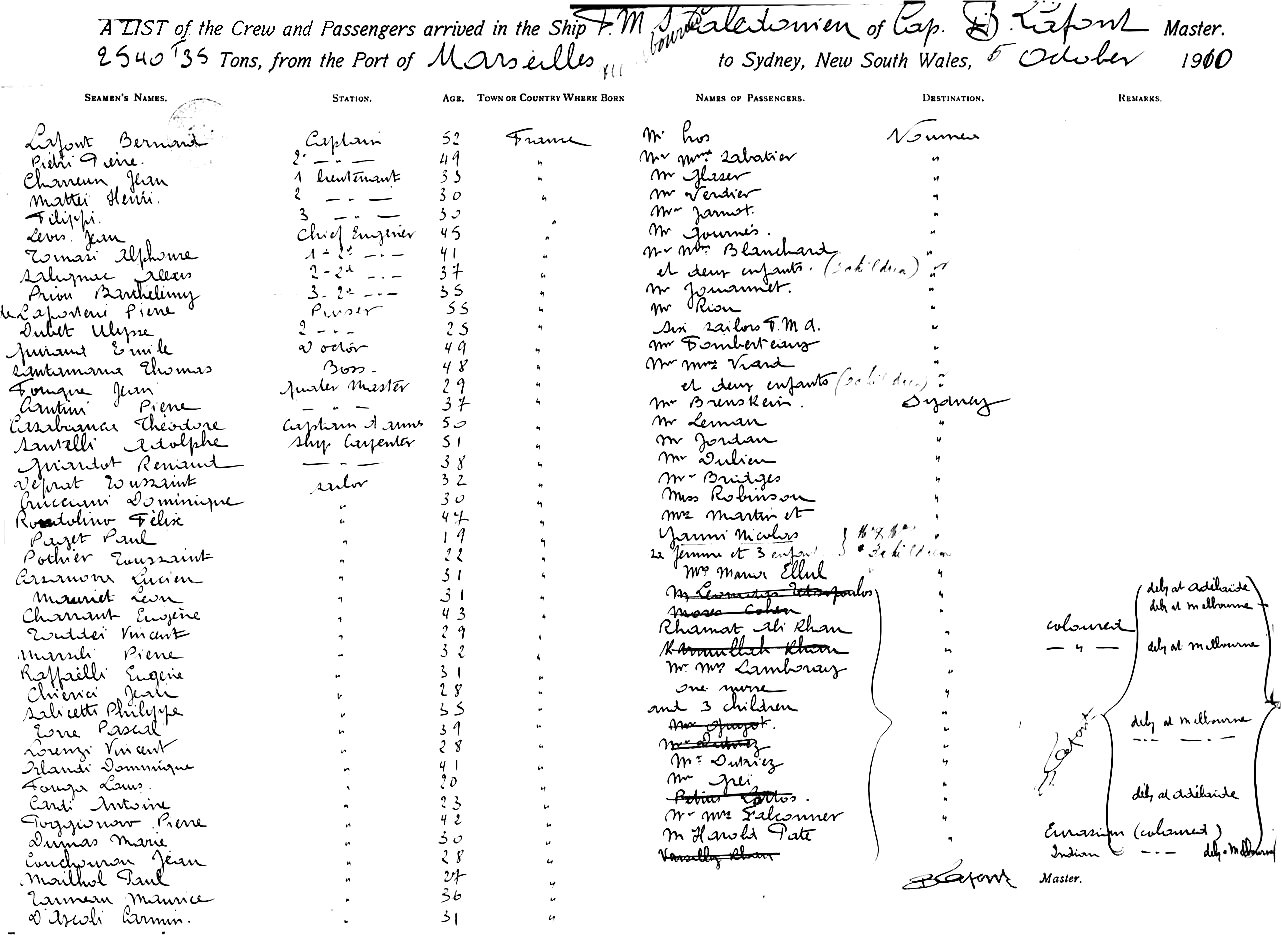 A LIST of the Crew and Passengers arrived in the Ship F.M.S. Caledonien of Cap. B. Lafont Master.
2540 T 35 Tons, from the Port of Marseilles to Sydney, New South Wales, 5 October 1910
SEAMEN'S NAMES. STATION. AGE. TOWN OR COUNTRY WHERE BORN NAMES OF PASSENGERS. DESTINATION. REMARKS.
Lafont Bernard Captain 52 France Mr Gros Noumea
Pietri Pierre. 2d — " — 49 " Mr Mme Sabatier "
Charreun Jean 1 lieutenant 33 " Mr Glaser "
Mattei Henri. 2 — " — 30 " Mr Verdier "
Filippi. 3 — " — 30 " Mr Jamot. "
Levis Jean Chief Engenier 45 " Mr Gournès. "
Tomasi Alphonse 1 - 2d — " — 41 " Mr Mme Blanchard "
Salignac Alexis 2 - 2d — " — 37 " et deux enfants. (2 children) "
Prion Barthélémy 3 - 2d — " — 35 " Mr Jouannet. "
de Laporterie Pierre Purser 55 " Mr Rion "
Dubet Ulysse 2 - " - 25 " six sailors F.M.A. "
Guiraud Emile Doctor 49 " Mr Fomberteaux "
Santamaria Thomas Boss. 48 " Mr Mrs Viard "
Fouque Jean Quater Master 29 " et deux enfants (2 children) "
Cantini Pierre — " — 37 " Mr Brenskein. Sydney
Casabianca Théodore Captain d'arms 50 " Mr Leman "
Santelli Adolphe Ship Carpenter 51 " Mr Jordan "
Girardot Renaud — " — 38 " Mr Dulieu "
Veprat Toussaint sailor 32 " Mr Bridges "
Gucciani Dominique " 30 " Miss Robinson "
Rondolino Félix " 47 " Mrs Martin et "
Paget Paul " 19 " Yanni Nicolas "
Pothier Toussaint " 22 " sa femme et 3 enfants 3 children "
Casanova Lucien " 31 " Mrs Maria Ellul "
Mauriet Leon " 31 " M Leonidas Tetropoulos " deby at Adélaide
Charrant Eugène " 43 " Moses Cohen " deby at Melbourne
Taddei Vincent " 29 " Rhamat Ali Khan " coloured
Marseli Pierre " 32 " Karmullah Khan " — " — deby at Melbourne
Raffaëlli Eugène " 31 " Mr Mrs Lamboray "
Chierici Jean " 28 " one nurse "
Salicetti Philippe " 35 " and 3 children "
Torre Pascal " 39 " Mr Guyot. " deby at Melbourne
Lorenzi Vincent " 28 " "
Orlandi Dominique " 41 " Mr Dutriez "
Fouga Louis. " 20 " Mr Grei "
Cardi Antoine " 23 " " deby at adélaide
Poggionovo Pierre " 42 " Mr Mrs Falconner "
Dumas Marie " 30 " M Harold Tate " Eurasian (coloured)
Couchouron Jean " 28 " Vassilly Khan Indian — " — deby Melbourne
Mailhol Paul " 27 " B Lafont Master.
Tanneau Maurice " 36 "
D'Ascoli Carmin. " 31 "
Lafont